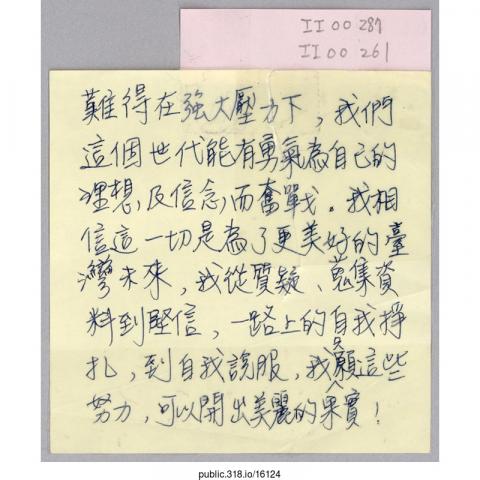 II00 287
II00 261
難得在強大壓力下，我們
這個世代能有勇氣為自己的
理想及信念而奮戰。我相
信這一切是為了更美好的臺
灣未來，我從質疑、蒐集資
料到堅信，一路上的自我掙
扎，到自我說服，我只願這些
努力，可以開出美麗的果實！
public.318.io/16124